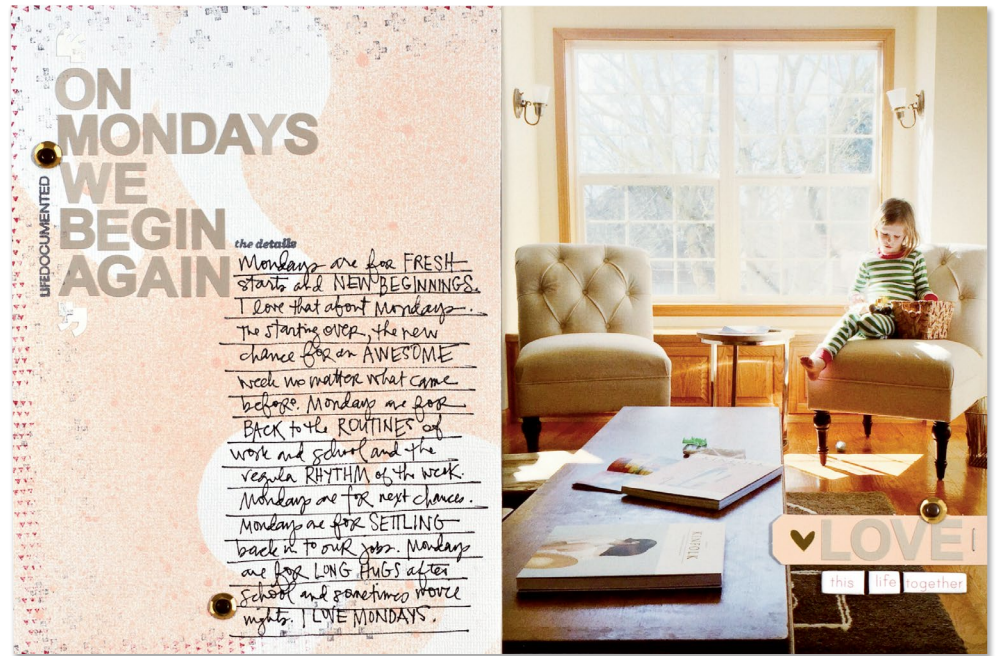 ON
MONDAYS
WE
BEGIN
AGAIN
LIFEDOCUMENTED
the details
Mondays are for FRESH
starts and NEW BEGINNINGS.
I love that about Mondays.
The starting over, the new
chance for an AWESOME
week no matter what came
before. Mondays are for
BACK to the ROUTINES of
work and school and the
regular RHYTHM of the week.
Mondays are for next chances.
Mondays are for SETTLING
back in to our jobs. Mondays
are for LONG HUGS after
school and sometimes movie
nights. I LOVE MONDAYS.
KINFOLK
LOVE
this life together